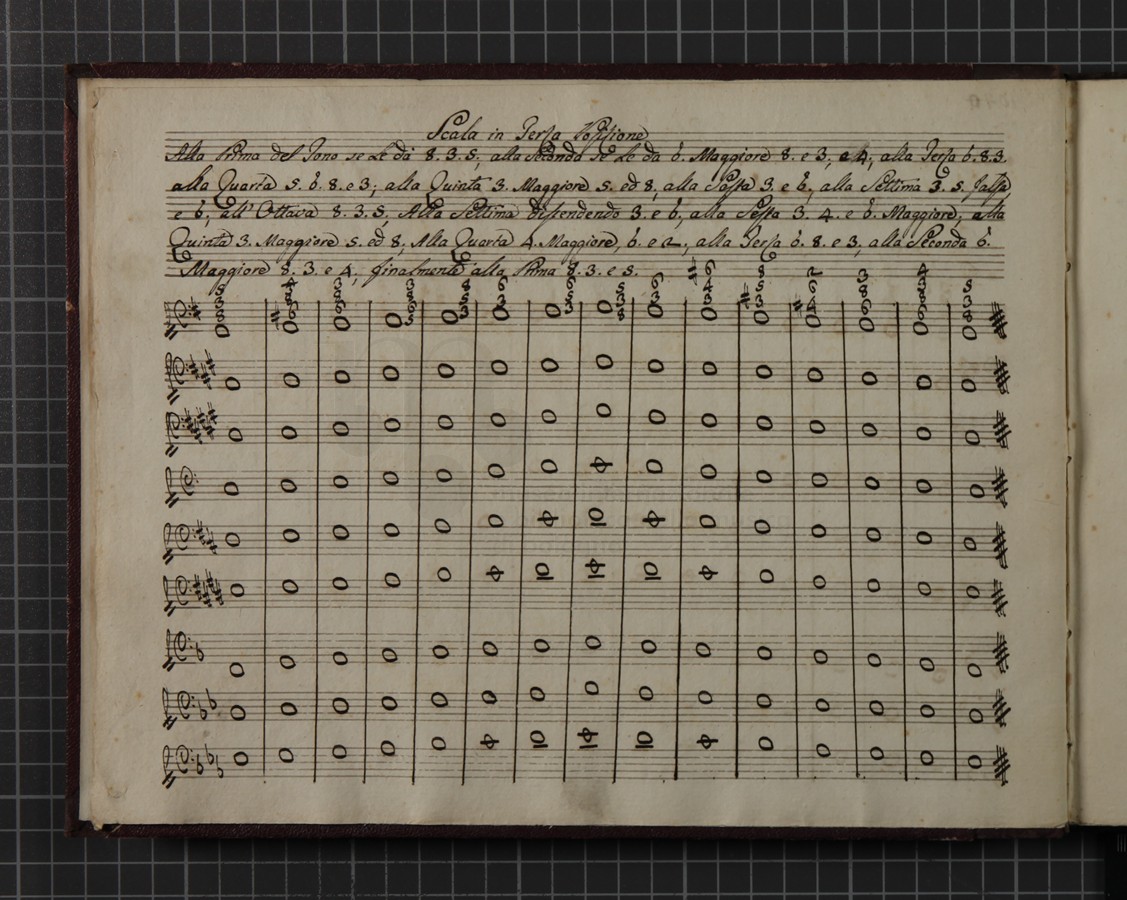 Scala in Terza Posizione
Alla Prima del Tono se Le dà 8. 3. 5, alla seconda se Le da 6. Maggiore 8. e 3, e 4, alla Terza 6. 8. 3.
alla Quarta 5. 6. 8. e 3; alla Quinta 3. Maggiore 5. ed 8, alla Sessta 3. e 6, alla Settima 3. 5. falsa,
e 6, all' Ottava 8. 3. 5, Alla Settima disendendo 3. e 6, alla Sesta 3. 4. e 6. Maggiore, alla
Quinta 3. Maggiore 5. ed 8, Alla Quarta 4. Maggiore, 6. e 2, alla Terza 6. 8. e 3, alla Seconda 6.
Maggiore 8. 3. e 4, finalmente alla Prima 8. 3. e 5.